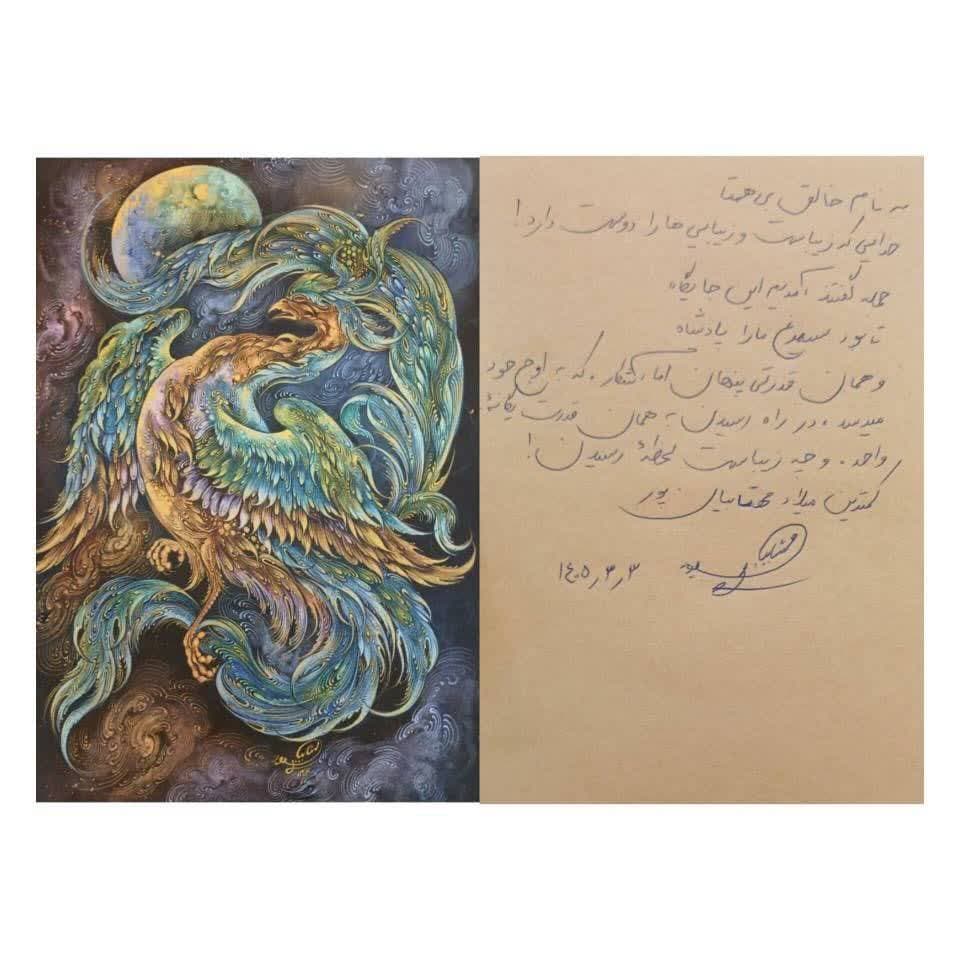 به نام خالق بی همتا
خدایی که زیباست و زیبایی ها را دوست دارد!
جمله گفتند آمدیم این جایگاه
تا بود سیمرغ ما را پادشاه
و همان قدرتی پنهان اما آشکار، که به اوج خود
میرسد، در راه رسیدن به همان قدرت یگانهٔ
واحد. و چه زیباست لحظهٔ رسیدن!
کمترین میلاد مهتابیان پور
۱۴۰۵٫۳٫۳